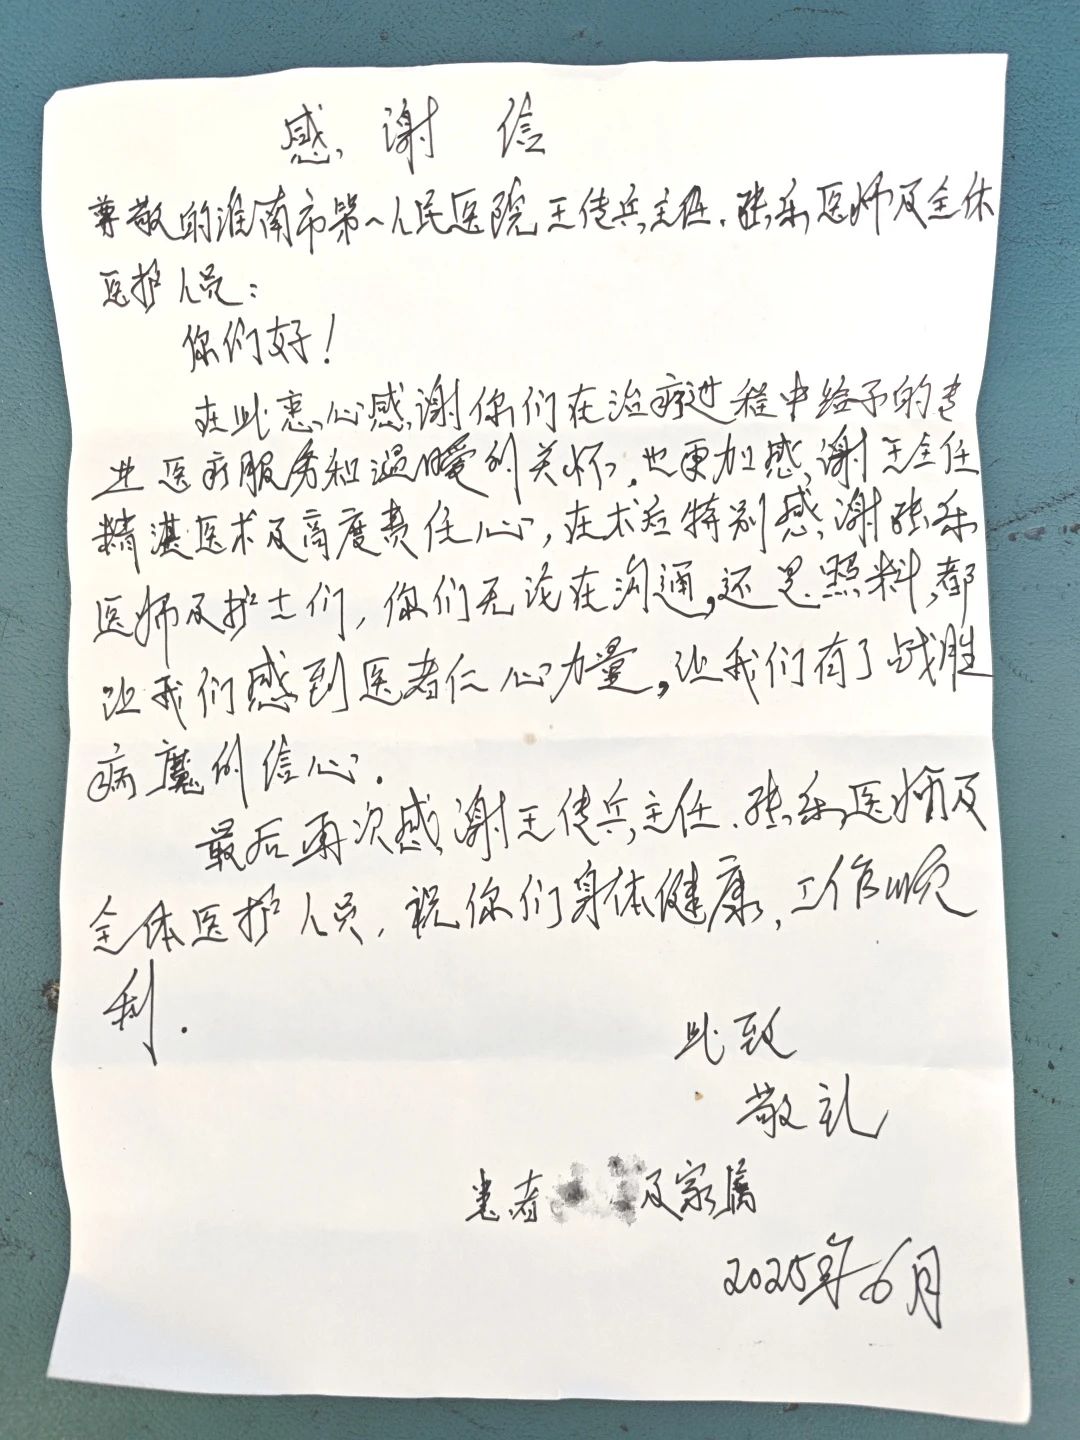 感谢信
尊敬的淮南市第一人民医院王传兵主任、张乐医师及全体
医护人员:
你们好!
在此衷心感谢你们在治疗过程中给予的专
业医疗服务和温暖的关怀,也更加感谢王主任
精湛医术及高度责任心,在术后特别感谢张乐
医师及护士们,你们无论在沟通,还是照料,都
让我们感到医者仁心力量,让我们有了战胜
病魔的信心.
最后再次感谢王传兵主任、张乐医师及
全体医护人员,祝你们身体健康,工作顺
利.
此致
敬礼
患者 及家属
2025年6月